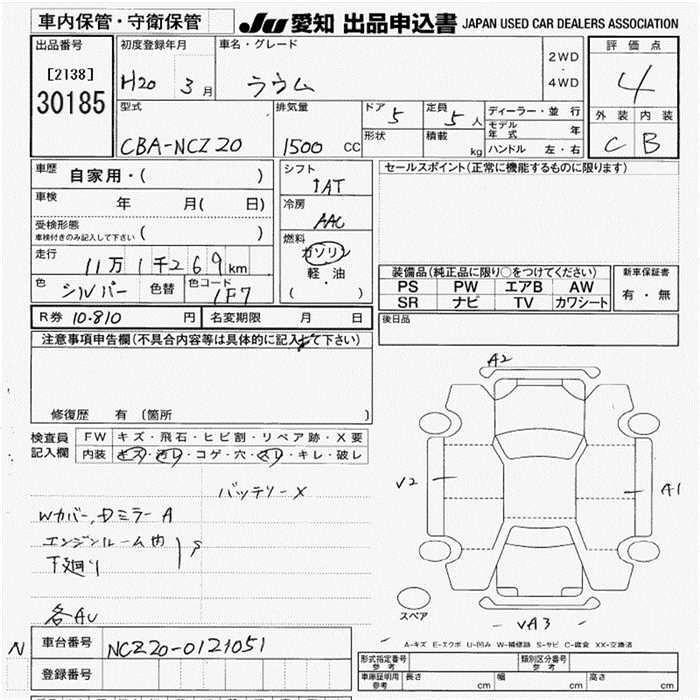 車内保管・守衛保管
JU 愛知 出品申込書 JAPAN USED CAR DEALERS ASSOCIATION
出品番号
[2138]
30185
初度登録年月
H20 3月
車名・グレード
ラウム
2WD
・
4WD
評価点
4
外装 内装
C B
型式
CBA-NCZ20
排気量
1500 CC
ドア 5
形状
定員 5人
積載 kg
ディーラー・並行
モデル年式 年
ハンドル 左・右
車歴 自家用・( )
車検 年 月( 日)
受検形態
車検付きのみ記入して下さい ( )
走行 11万1千269km
色 シルバー 色替 色コード 1F7
シフト
IAT
冷房
AAC
燃料
ガソリン
軽・油
( )
セールスポイント(正常に機能するものに限ります)
装備品(純正品に限り○をつけてください)
PS PW エアB AW
SR ナビ TV カワシート
新車保証書
有・無
R券 10.810 円 名変期限 月 日
後日品
注意事項申告欄(不具合内容等は具体的に記入して下さい)
修復歴 有 [箇所 ]
検査員記入欄
FW キズ・飛石・ヒビ割・リペア跡・X要
内装 キズ・汚レ・コゲ・穴・スレ・キレ・破レ
バッテリーX
Wカバー,Dミラー A
エンジンルーム内
下廻り
S
各AU
A2
V2
A1
VA3
スペア
A-キズ E-エクボ U-凹み W-補修跡 S-サビ C-腐食 XX-交換済
N
車台番号 NCZ20-0121051
登録番号
形式指定番号
参考
類別区分番号
参考
車庫証明用
参考
長さ cm 幅 cm 高さ cm